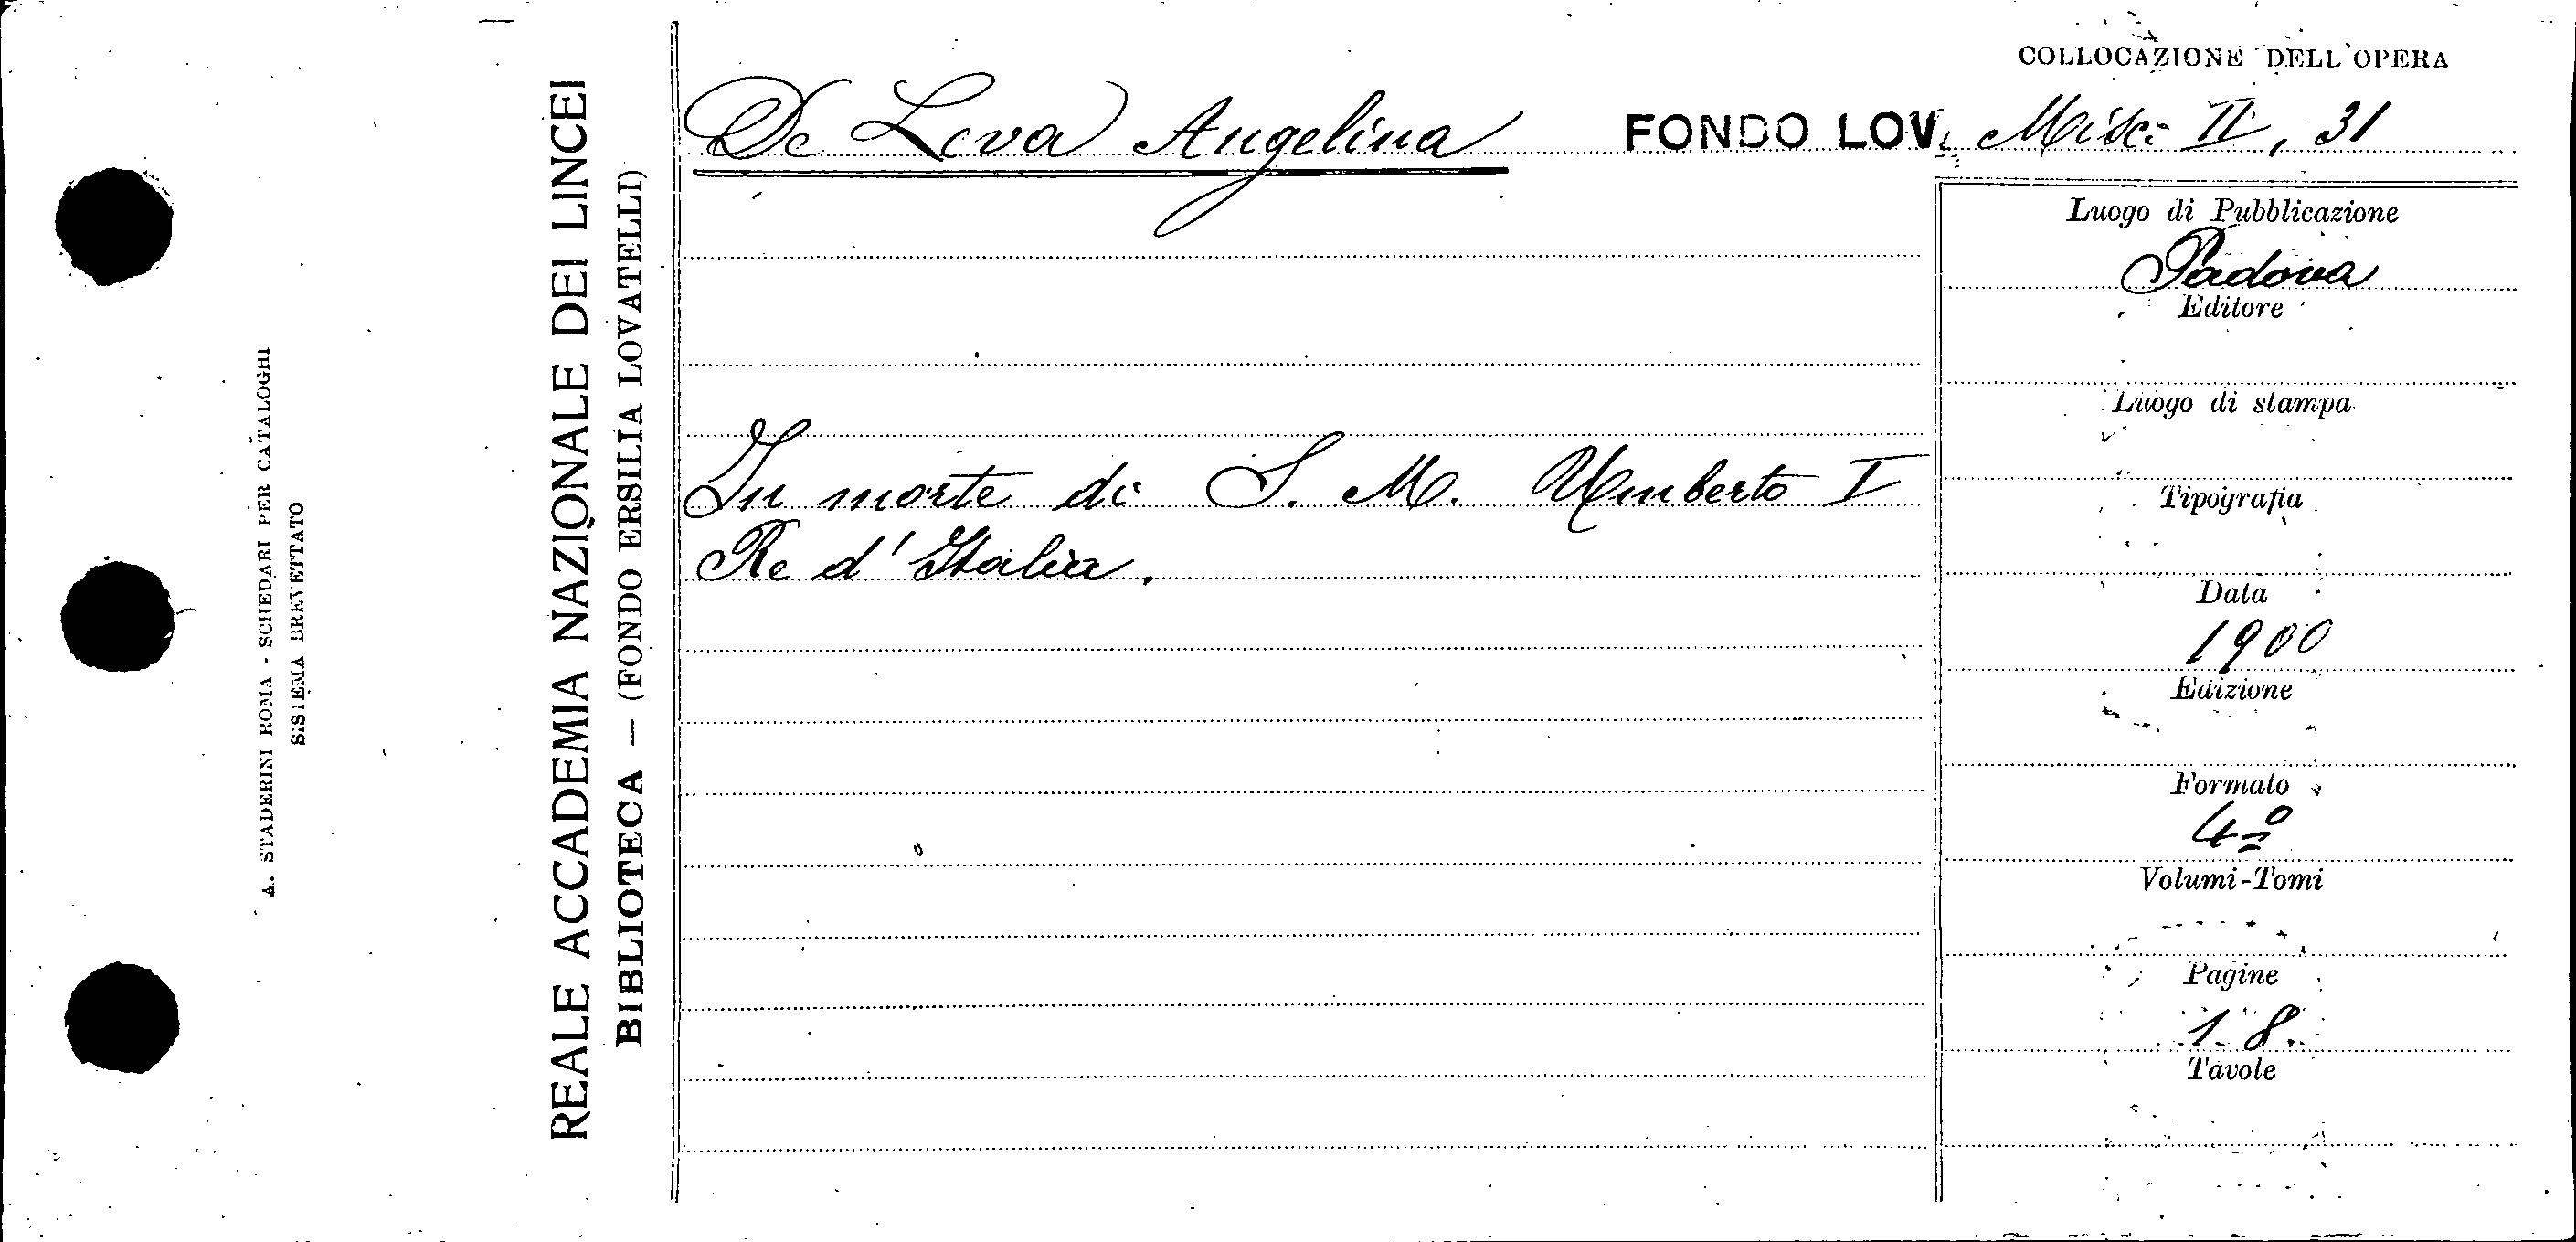 A. STADERINI ROMA - SCHEDARI PER CATALOGHI
SISTEMA BREVETTATO
REALE ACCADEMIA NAZIONALE DEI LINCEI
BIBLIOTECA — (FONDO ERSILIA LOVATELLI)
COLLOCAZIONE DELL'OPERA
De Leva Angelina FONDO LOV. Misc. II, 31
In morte di S. M. Umberto I
Re d'Italia.
Luogo di Pubblicazione
Padova
Editore
Luogo di stampa
Tipografia
Data
1900
Edizione
Formato
4º
Volumi-Tomi
Pagine
18.
Tavole